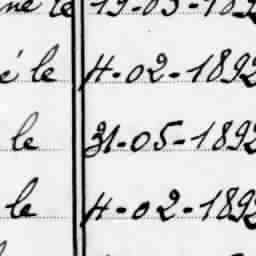 né le 19-05-189
é le 4-02-1892
le 31-05-1892
le 4-02-1892